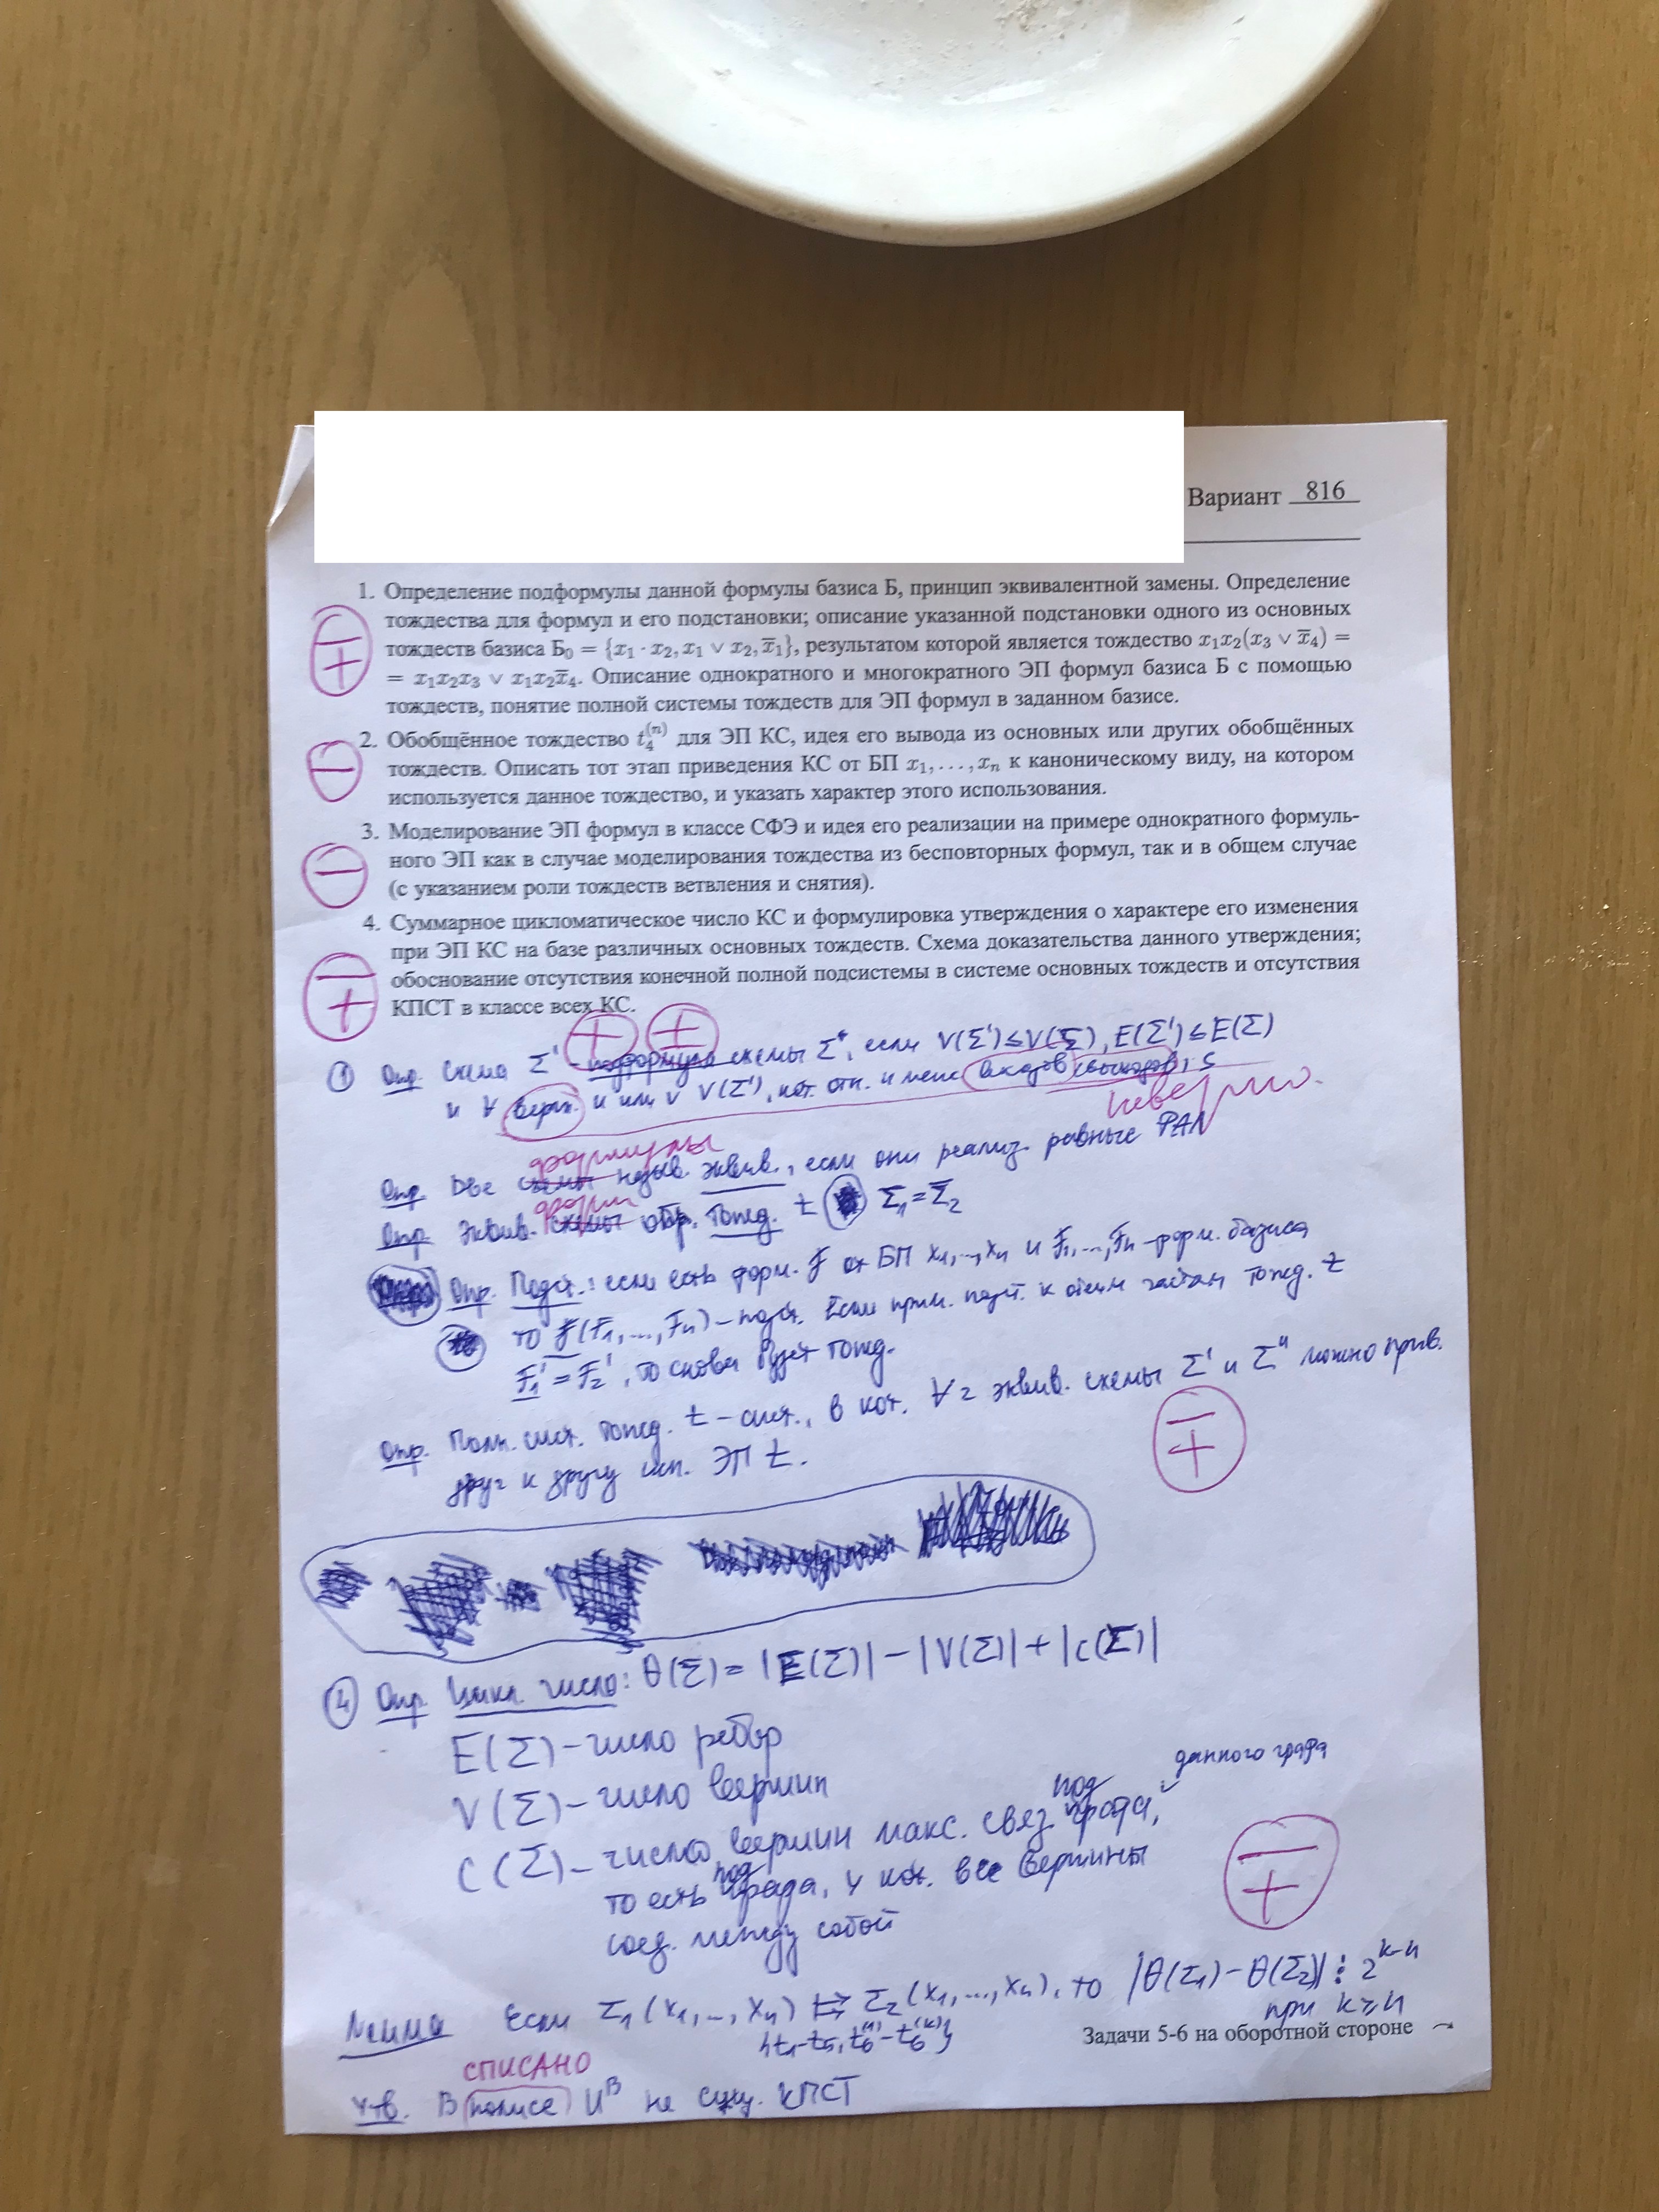 Вариант 816
1. Определение подформулы данной формулы базиса Б, принцип эквивалентной замены. Определение
тождества для формул и его подстановки; описание указанной подстановки одного из основных
тождеств базиса Б₀ = {x₁ · x₂, x₁ ∨ x₂, x̅₁}, результатом которой является тождество x₁x₂(x₃ ∨ x̅₄) =
= x₁x₂x₃ ∨ x₁x₂x̅₄. Описание однократного и многократного ЭП формул базиса Б с помощью
тождеств, понятие полной системы тождеств для ЭП формул в заданном базисе.
2. Обобщённое тождество t₄⁽ⁿ⁾ для ЭП КС, идея его вывода из основных или других обобщённых
тождеств. Описать тот этап приведения КС от БП x₁, . . . , xₙ к каноническому виду, на котором
используется данное тождество, и указать характер этого использования.
3. Моделирование ЭП формул в классе СФЭ и идея его реализации на примере однократного формуль-
ного ЭП как в случае моделирования тождества из бесповторных формул, так и в общем случае
(с указанием роли тождеств ветвления и снятия).
4. Суммарное цикломатическое число КС и формулировка утверждения о характере его изменения
при ЭП КС на базе различных основных тождеств. Схема доказательства данного утверждения;
обоснование отсутствия конечной полной подсистемы в системе основных тождеств и отсутствия
КПСТ в классе всех КС.
① Опр. Схема Σ' - подформула схемы Σ, если V(Σ') ≤ V(Σ), E(Σ') ≤ E(Σ)
и ∀ верш. V(Σ'), кот. входов (выходов)
неверно.
формулы
Опр. Две схемы назыв. эквив., если они реализ. равные ФАЛ
форм
Опр. Эквив. схемы обр. тожд. t Σ₁ = Σ₂
Опр. Подст.: если есть форм. F от БП x₁, ..., xₙ и F₁, ..., Fₙ - форм. базиса
то F(F₁, ..., Fₙ) - подст. Если прим. подст. к обеим частям тожд. t
F₁' = F₂', то снова будет тожд.
Опр. Полн. сист. тожд. t - сист., в кот. ∀ 2 эквив. схемы Σ' и Σ'' можно прив.
друг к другу исп. ЭП t.
④ Опр Цикл. число: θ(Σ) = |E(Σ)| - |V(Σ)| + |C(Σ)|
E(Σ) - число рёбер
V(Σ) - число вершин
данного графа
C(Σ) - число вершин макс. связ. подграфа,
то есть подграфа, у кот. все вершины
соед. между собой
Лемма Если Σ₁(x₁, ..., xₙ) ⇄ Σ₂(x₁, ..., xₙ), то |θ(Σ₁) - θ(Σ₂)| ⋮ 2ᵏ⁻ⁿ
{t₁-t₅, t₆⁽¹⁾ - t₆⁽ᵏ⁾} при k ≥ n
Задачи 5-6 на оборотной стороне
СПИСАНО
Утв. В не сущ. КПСТ